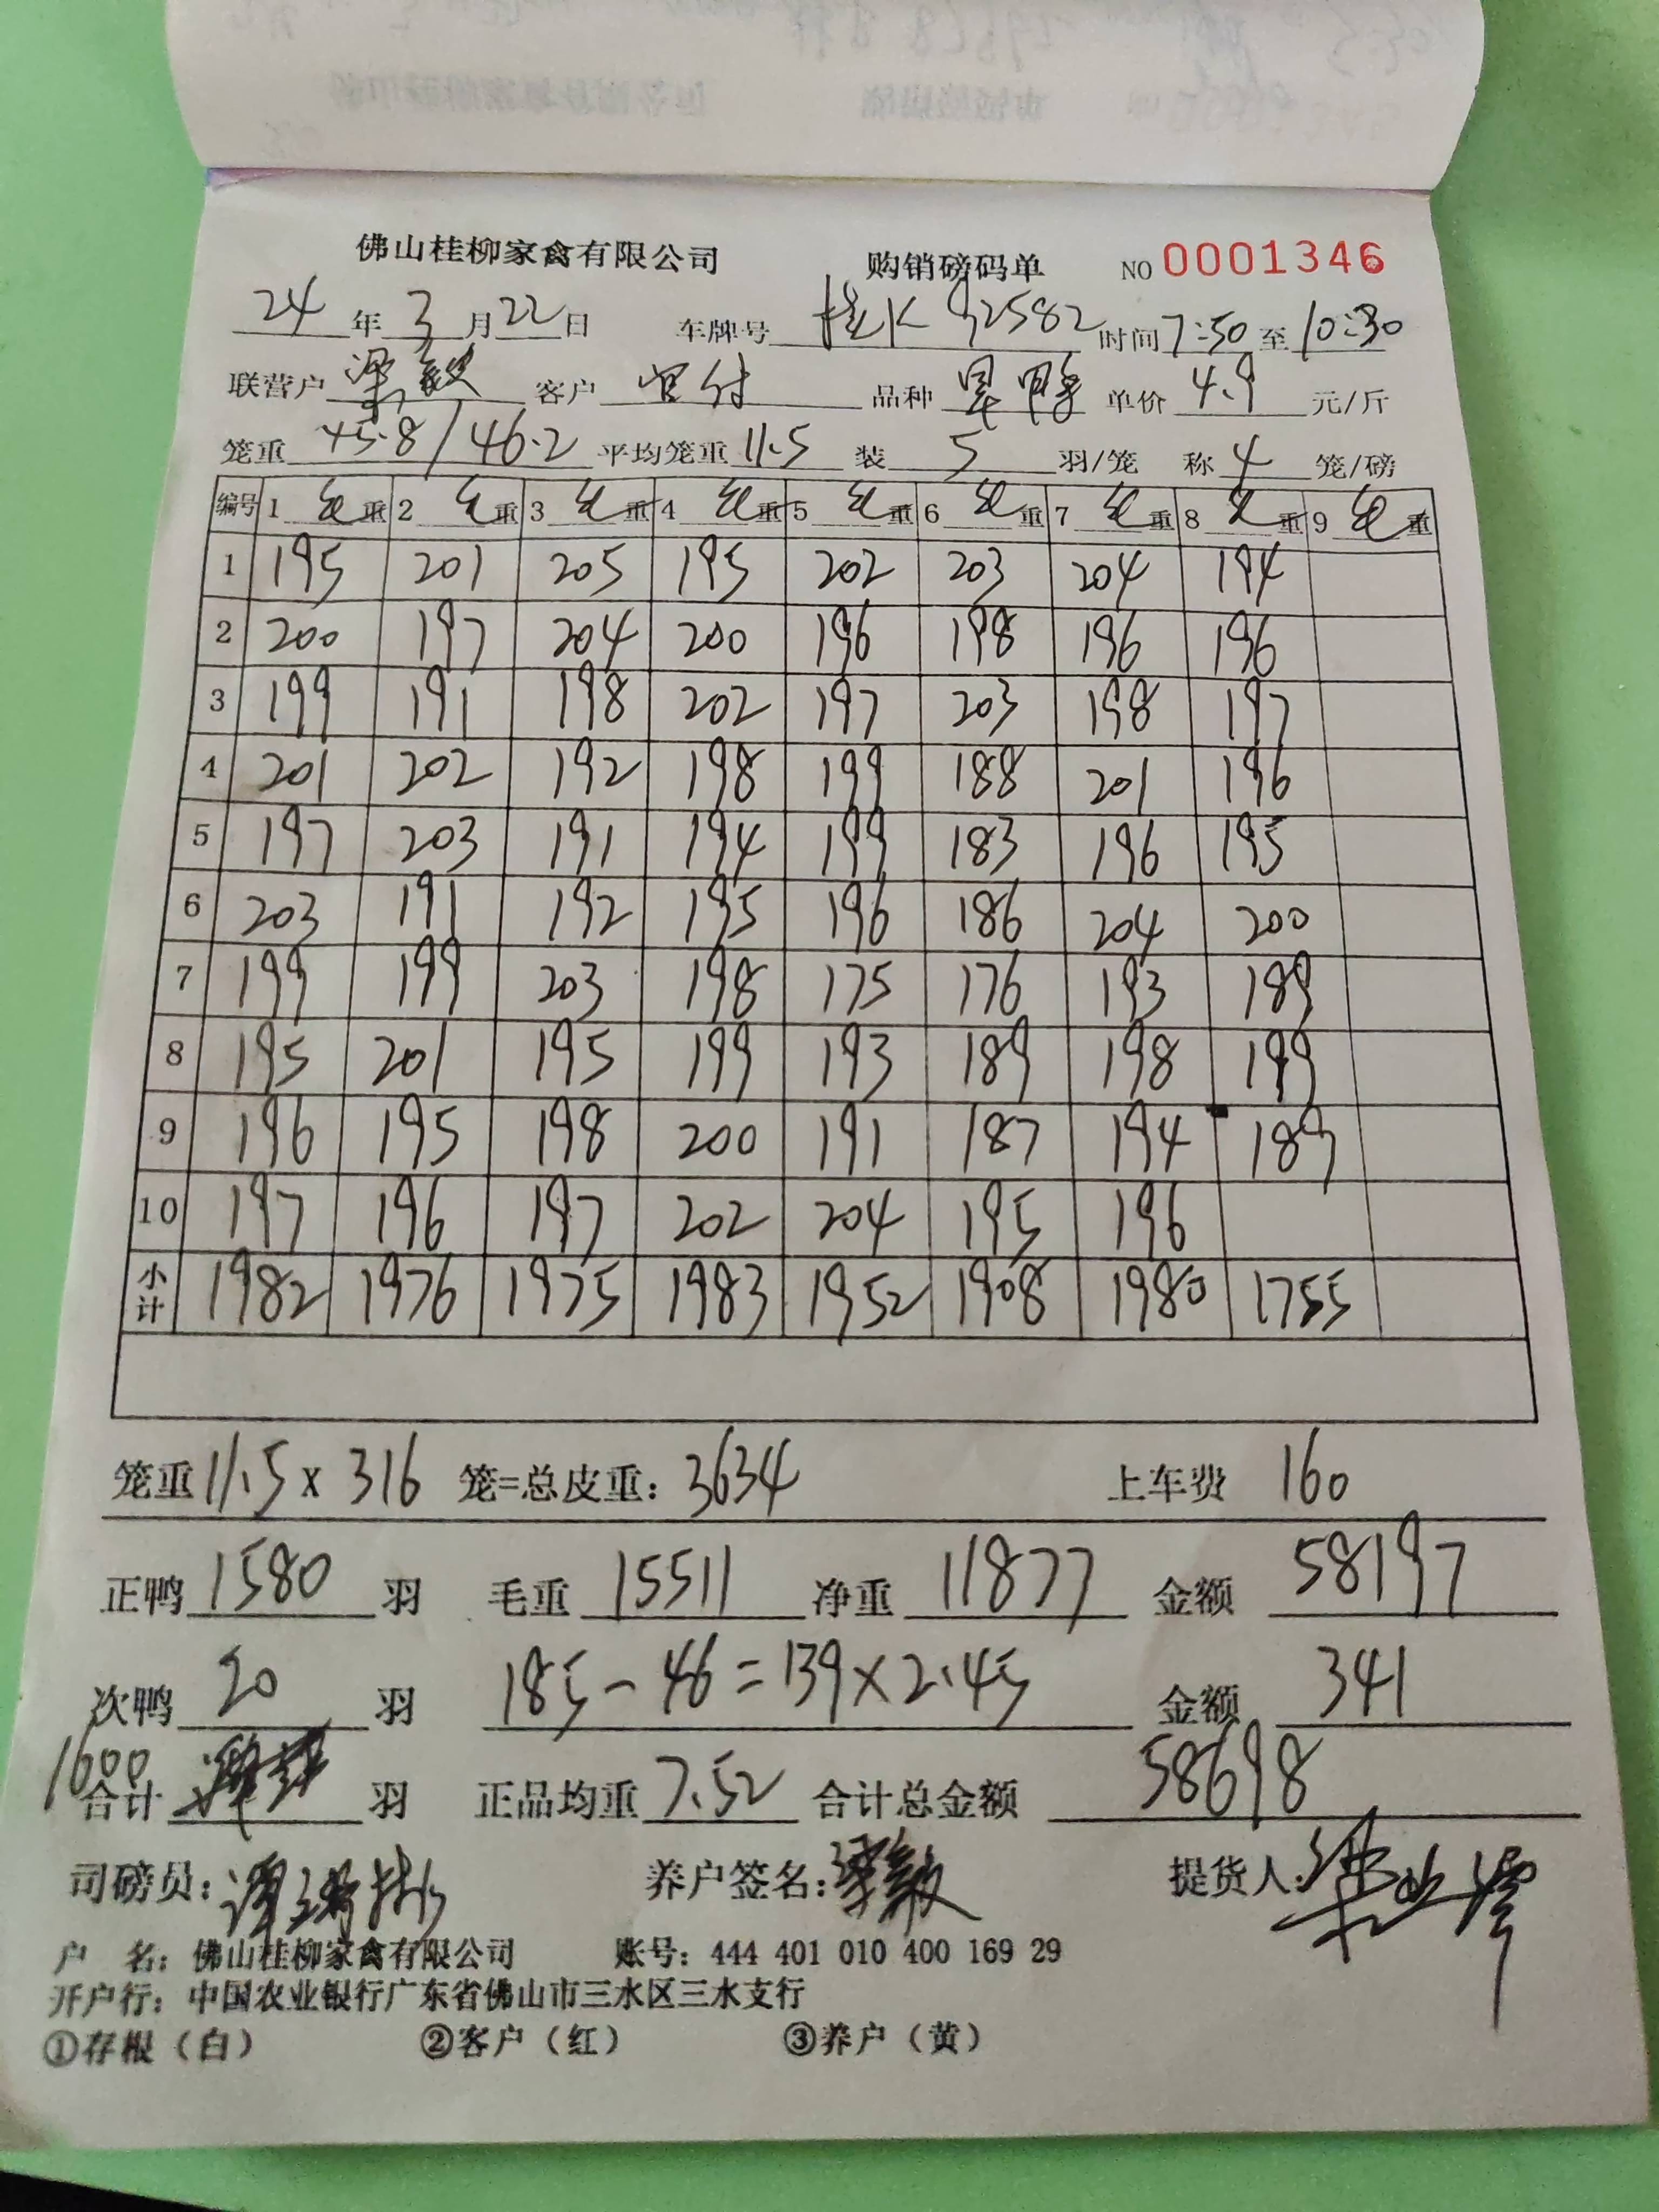 佛山桂柳家禽有限公司 购销磅码单 NO 0001346
24 年 3 月 22 日 车牌号 桂K92582 时间 7:50 至 10:30
联营户 梁毅 客户 品种 单价 4.9 元/斤
笼重 45.8/46.2 平均笼重 11.5 装 5 羽/笼 称 4 笼/磅
编号 1 毛重 2 毛重 3 毛重 4 毛重 5 毛重 6 毛重 7 毛重 8 毛重 9 毛重
1 195 201 205 195 202 203 204 194
2 200 197 204 200 196 198 196 196
3 199 191 198 202 197 203 198 197
4 201 202 192 198 199 188 201 196
5 197 203 191 194 199 183 196 195
6 203 191 192 195 196 186 204 200
7 199 199 203 198 175 176 193 189
8 195 201 195 199 193 189 198 199
9 196 195 198 200 191 187 194 189
10 197 196 197 202 204 195 196
小计 1982 1976 1975 1983 1952 1908 1980 1755
笼重 11.5 x 316 笼=总皮重: 3634 上车费 160
正鸭 1580 羽 毛重 15511 净重 11877 金额 58197
次鸭 20 羽 185-46=139×2.45 金额 341
1600 合计 羽 正品均重 7.52 合计总金额 58698
司磅员: 养户签名: 梁毅 提货人:
户 名: 佛山桂柳家禽有限公司 账号: 444 401 010 400 169 29
开户行: 中国农业银行广东省佛山市三水区三水支行
①存根（白） ②客户（红） ③养户（黄）